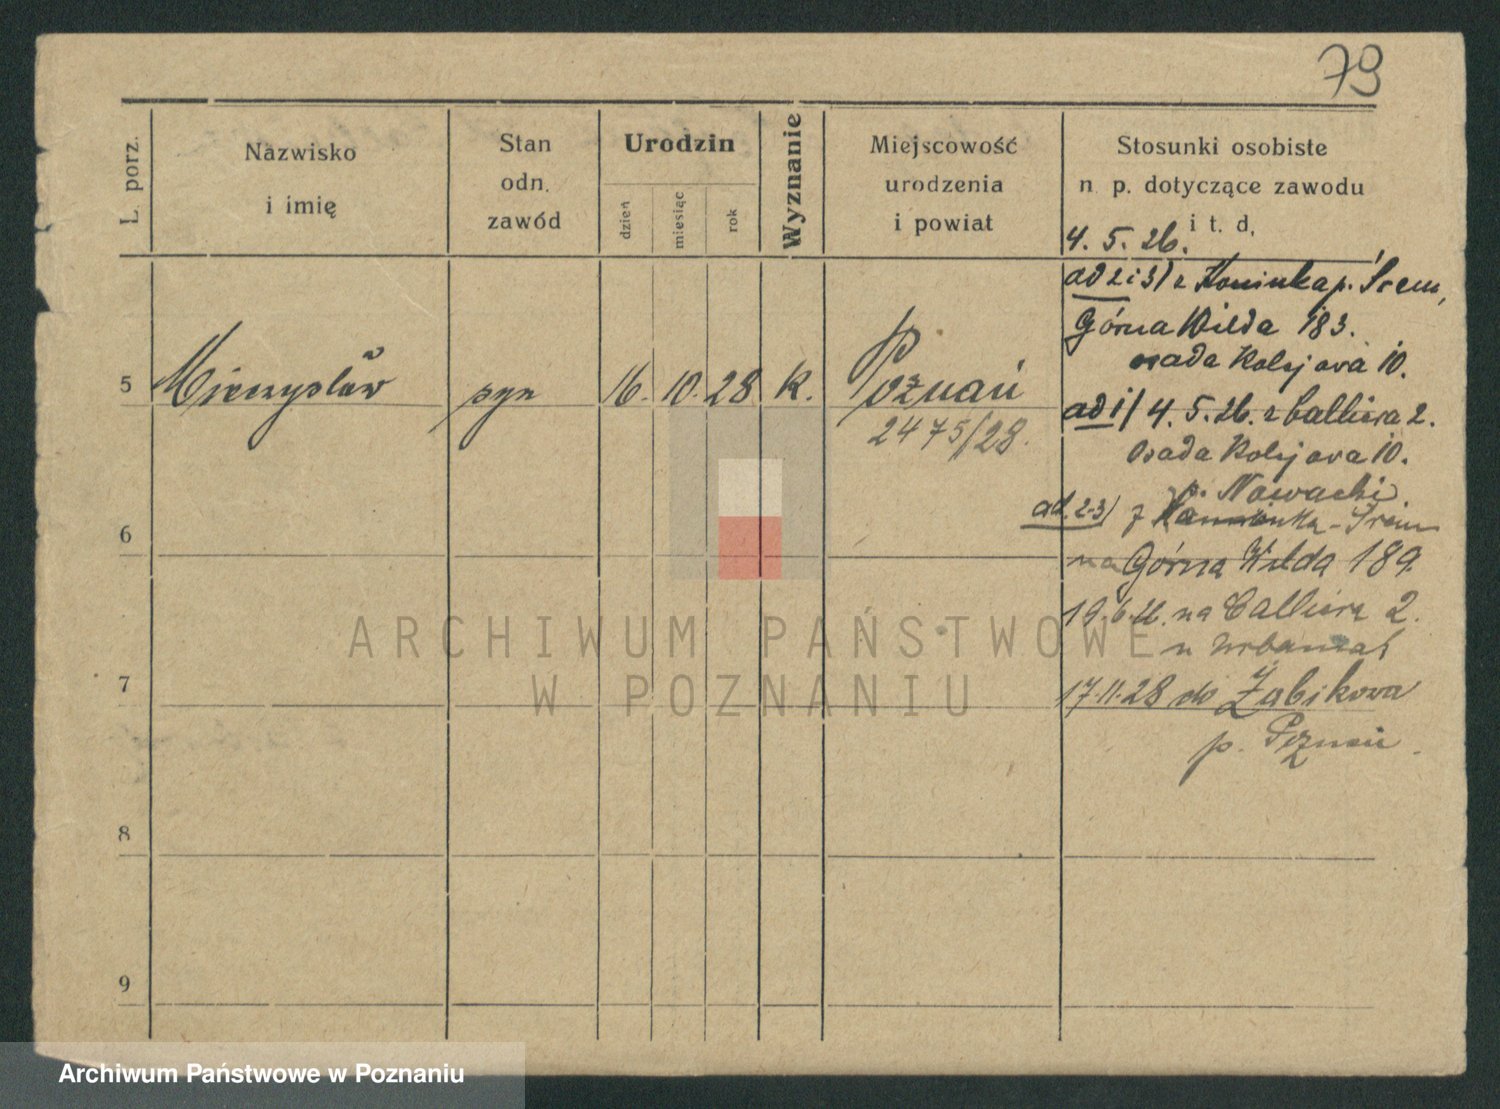 79
L. porz.
Nazwisko
i imię
Stan
odn.
zawód
Urodzin
dzień
miesiąc
rok
Wyznanie
Miejscowość
urodzenia
i powiat
Stosunki osobiste
n p. dotyczące zawodu
i t. d.
4. 5. 26.
ad 2 i 3/ z p. Śrem,
Górna Wilda 183.
osada Kolejowa 10.
5 Mieczysław syn 16. 10. 28 k. Poznań
2475/28.
ad 1/ 4. 5. 26. z Calliera 2.
Osada Kolejowa 10.
p. Nowacki
ad. 2-3/ z - Śrem
6
na Górna Wilda 189
19.6. na Calliera 2.
u
7
17.11.28 do Żabikowa
p. Poznań.
8
9
ARCHIWUM PAŃSTWOWE
W POZNANIU
Archiwum Państwowe w Poznaniu